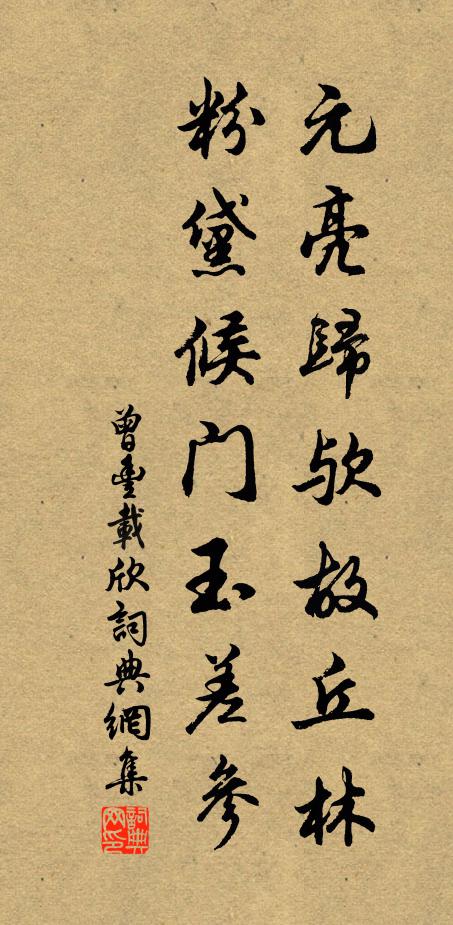 元亮歸欤故丘林
粉黛候门玉差參
曾豐載欣詞典網集
詞典网印